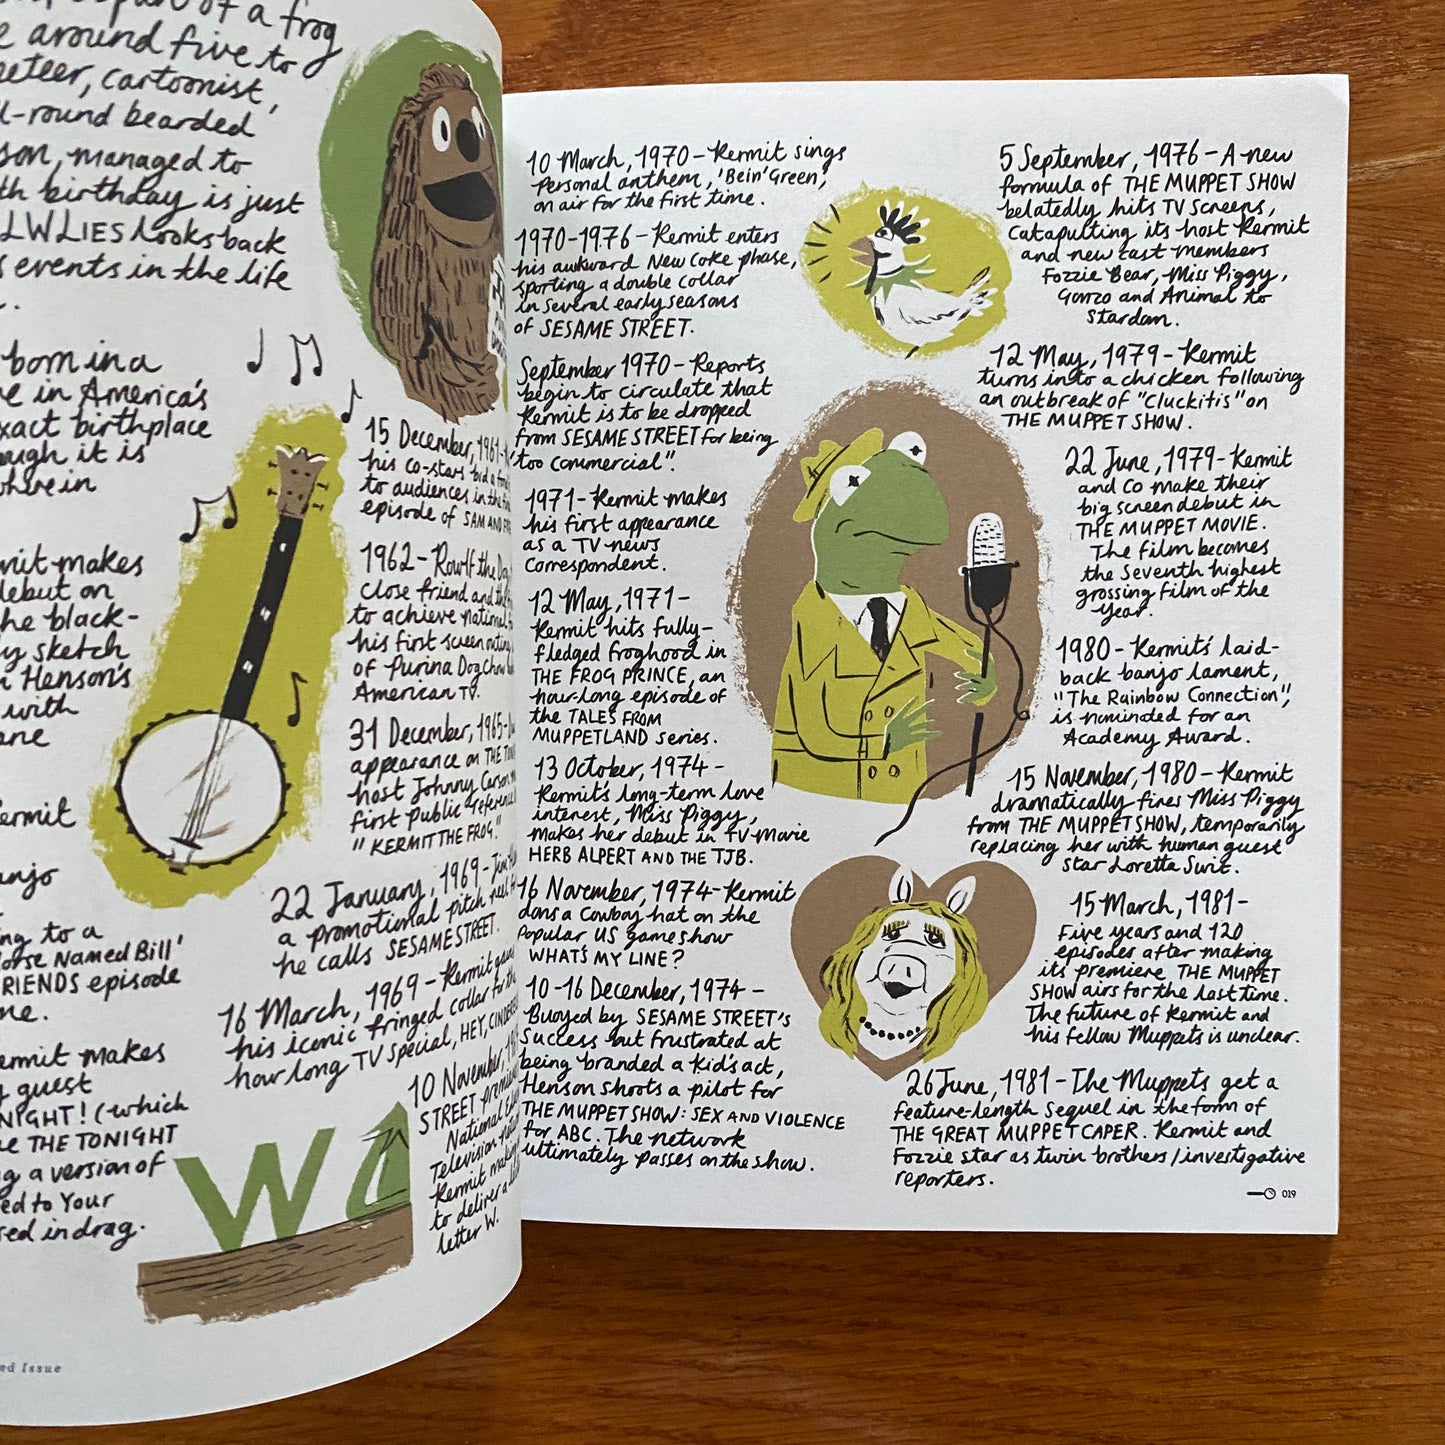 of a frog
around five to
cartoonist,
-round bearded
managed to
birthday is just
LWLIES looks back
events in the life
born in a
in America's
exact birthplace
it is
where in
makes
debut on
the black-
sketch
Henson's
with
15 December, 1961-
his co-stars bid a
to audiences in the
episode of SAM AND
1962 - Rowlf the Dog
close friend and
to achieve national
his first screen outing
of Purina Dog Chow
American TV.
31 December, 1965-
appearance on THE
host Johnny Carson
first public "reference
"KERMIT THE FROG."
22 January, 1969 - Jim
a promotional pitch reel
he calls SESAME STREET.
16 March, 1969 - Kermit
his iconic fringed collar for the
hour long TV special, HEY, CINDERE
10 November,
STREET
National
Television
Kermit
to deliver a
letter W.
to a
Horse Named Bill'
FRIENDS episode
makes
guest
TONIGHT! (which
THE TONIGHT
a version of
to Your
in drag.
W
Issue
10 March, 1970 - Kermit sings
personal anthem, 'Bein' Green,'
on air for the first time.
1970-1976 - Kermit enters
his awkward New Coke phase,
sporting a double collar
in several early seasons
of SESAME STREET.
September 1970 - Reports
begin to circulate that
Kermit is to be dropped
from SESAME STREET for being
"too commercial".
1971 - Kermit makes
his first appearance
as a TV news
correspondent.
12 May, 1971 -
Kermit hits fully-
fledged froghood in
THE FROG PRINCE, an
hour-long episode of
the TALES FROM
MUPPETLAND series.
13 October, 1974 -
Kermit's long-term love
interest, Miss Piggy,
makes her debut in TV movie
HERB ALPERT AND THE TJB.
16 November, 1974 - Kermit
dons a cowboy hat on the
popular US gameshow
WHAT'S MY LINE?
10-16 December, 1974 -
Buoyed by SESAME STREET's
success but frustrated at
being branded a kid's act,
Henson shoots a pilot for
THE MUPPET SHOW: SEX AND VIOLENCE
for ABC. The network
ultimately passes on the show.
5 September, 1976 - A new
formula of THE MUPPET SHOW
belatedly hits TV screens,
catapulting its host Kermit
and new cast members
Fozzie Bear, Miss Piggy,
Gonzo and Animal to
stardom.
12 May, 1979 - Kermit
turns into a chicken following
an outbreak of "Cluckitis" on
THE MUPPET SHOW.
22 June, 1979 - Kermit
and co make their
big screen debut in
THE MUPPET MOVIE.
The film becomes
the seventh highest
grossing film of the
year.
1980 - Kermit's laid-
back banjo lament,
"The Rainbow Connection",
is nominated for an
Academy Award.
15 November, 1980 - Kermit
dramatically fires Miss Piggy
from THE MUPPET SHOW, temporarily
replacing her with human guest
star Loretta Swit.
15 March, 1981 -
Five years and 120
episodes after making
its premiere THE MUPPET
SHOW airs for the last time.
The future of Kermit and
his fellow Muppets is unclear.
26 June, 1981 - The Muppets get a
feature-length sequel in the form of
THE GREAT MUPPET CAPER. Kermit and
Fozzie star as twin brothers/investigative
reporters.
019